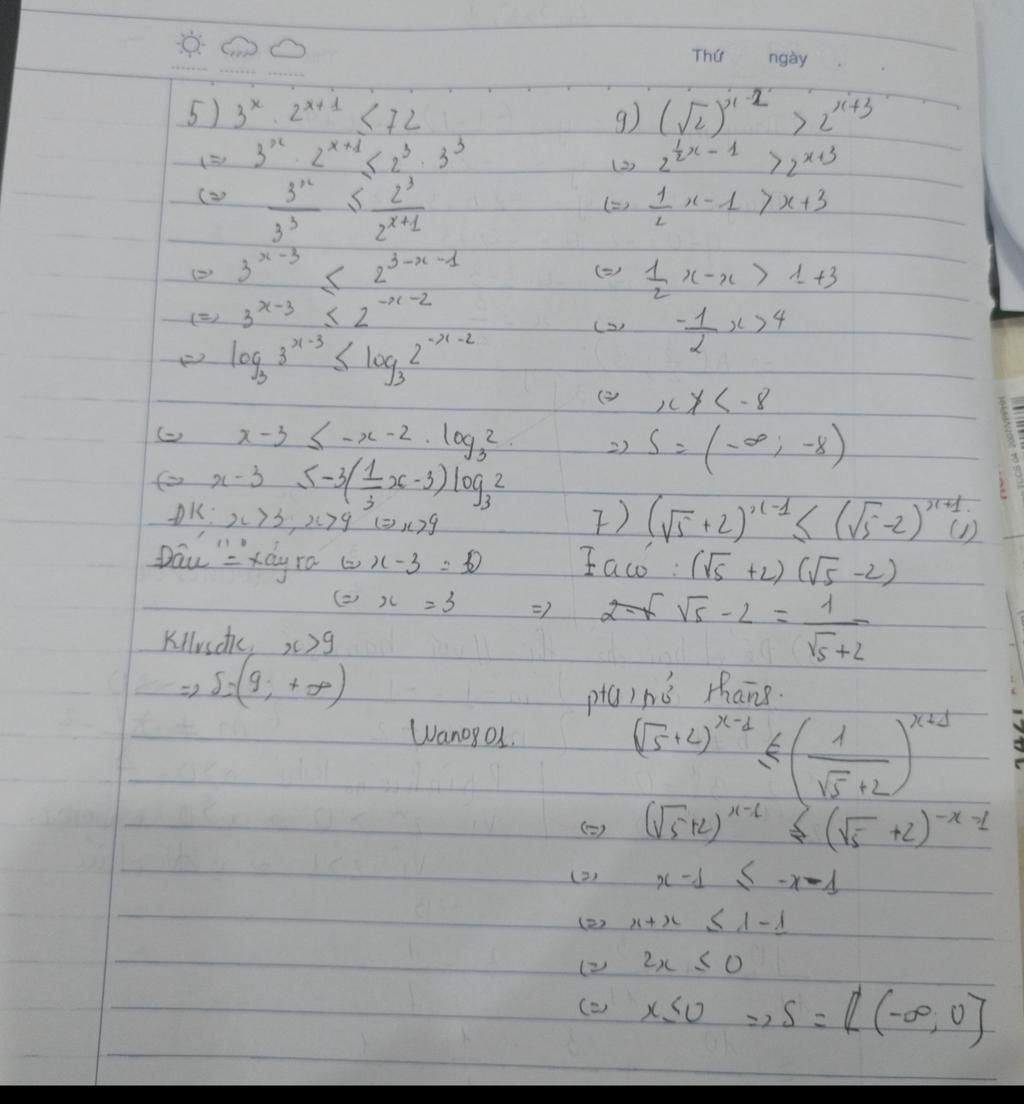 Thứ ngày
5) 3^x . 2^{x+1} ≤ 72
⇔ 3^x . 2^{x+1} ≤ 2^3 . 3^3
⇔ 3^x/3^3 ≤ 2^3/2^{x+1}
⇔ 3^{x-3} ≤ 2^{3-x-1}
⇔ 3^{x-3} ≤ 2^{-x-2}
⇔ log_3 3^{x-3} ≤ log_3 2^{-x-2}
⇔ x-3 ≤ -x-2 . log_3 2.
⇔ x-3 ≤ -3(1/3 x-3) log_3 2
ĐK: x>3; x>9 ⇔ x>9
Dấu "=" xảy ra ⇔ x-3 = 0
⇔ x = 3
x>9
⇒ S=(9; +∞)
9) (√2)^{x-2} > 2^{x+3}
⇔ 2^{1/2 x-1} > 2^{x+3}
⇔ 1/2 x-1 > x+3
⇔ 1/2 x-x > 1+3
⇔ -1/2 x > 4
⇔ x < -8
⇒ S = (-∞; -8)
7) (√5+2)^{x-1} ≤ (√5-2)^{x+1}. (1)
Ta có : (√5 +2) (√5 -2)
⇒ √5 -2 = 1/(√5+2)
pt(1) trở thành.
(√5+2)^{x-1} ≤ (1/(√5+2))^{x+1}
⇔ (√5+2)^{x-1} ≤ (√5 +2)^{-x-1}
⇔ x-1 ≤ -x-1
⇔ x+x ≤ 1-1
⇔ 2x ≤ 0
⇔ x≤0 ⇒ S = (-∞; 0]